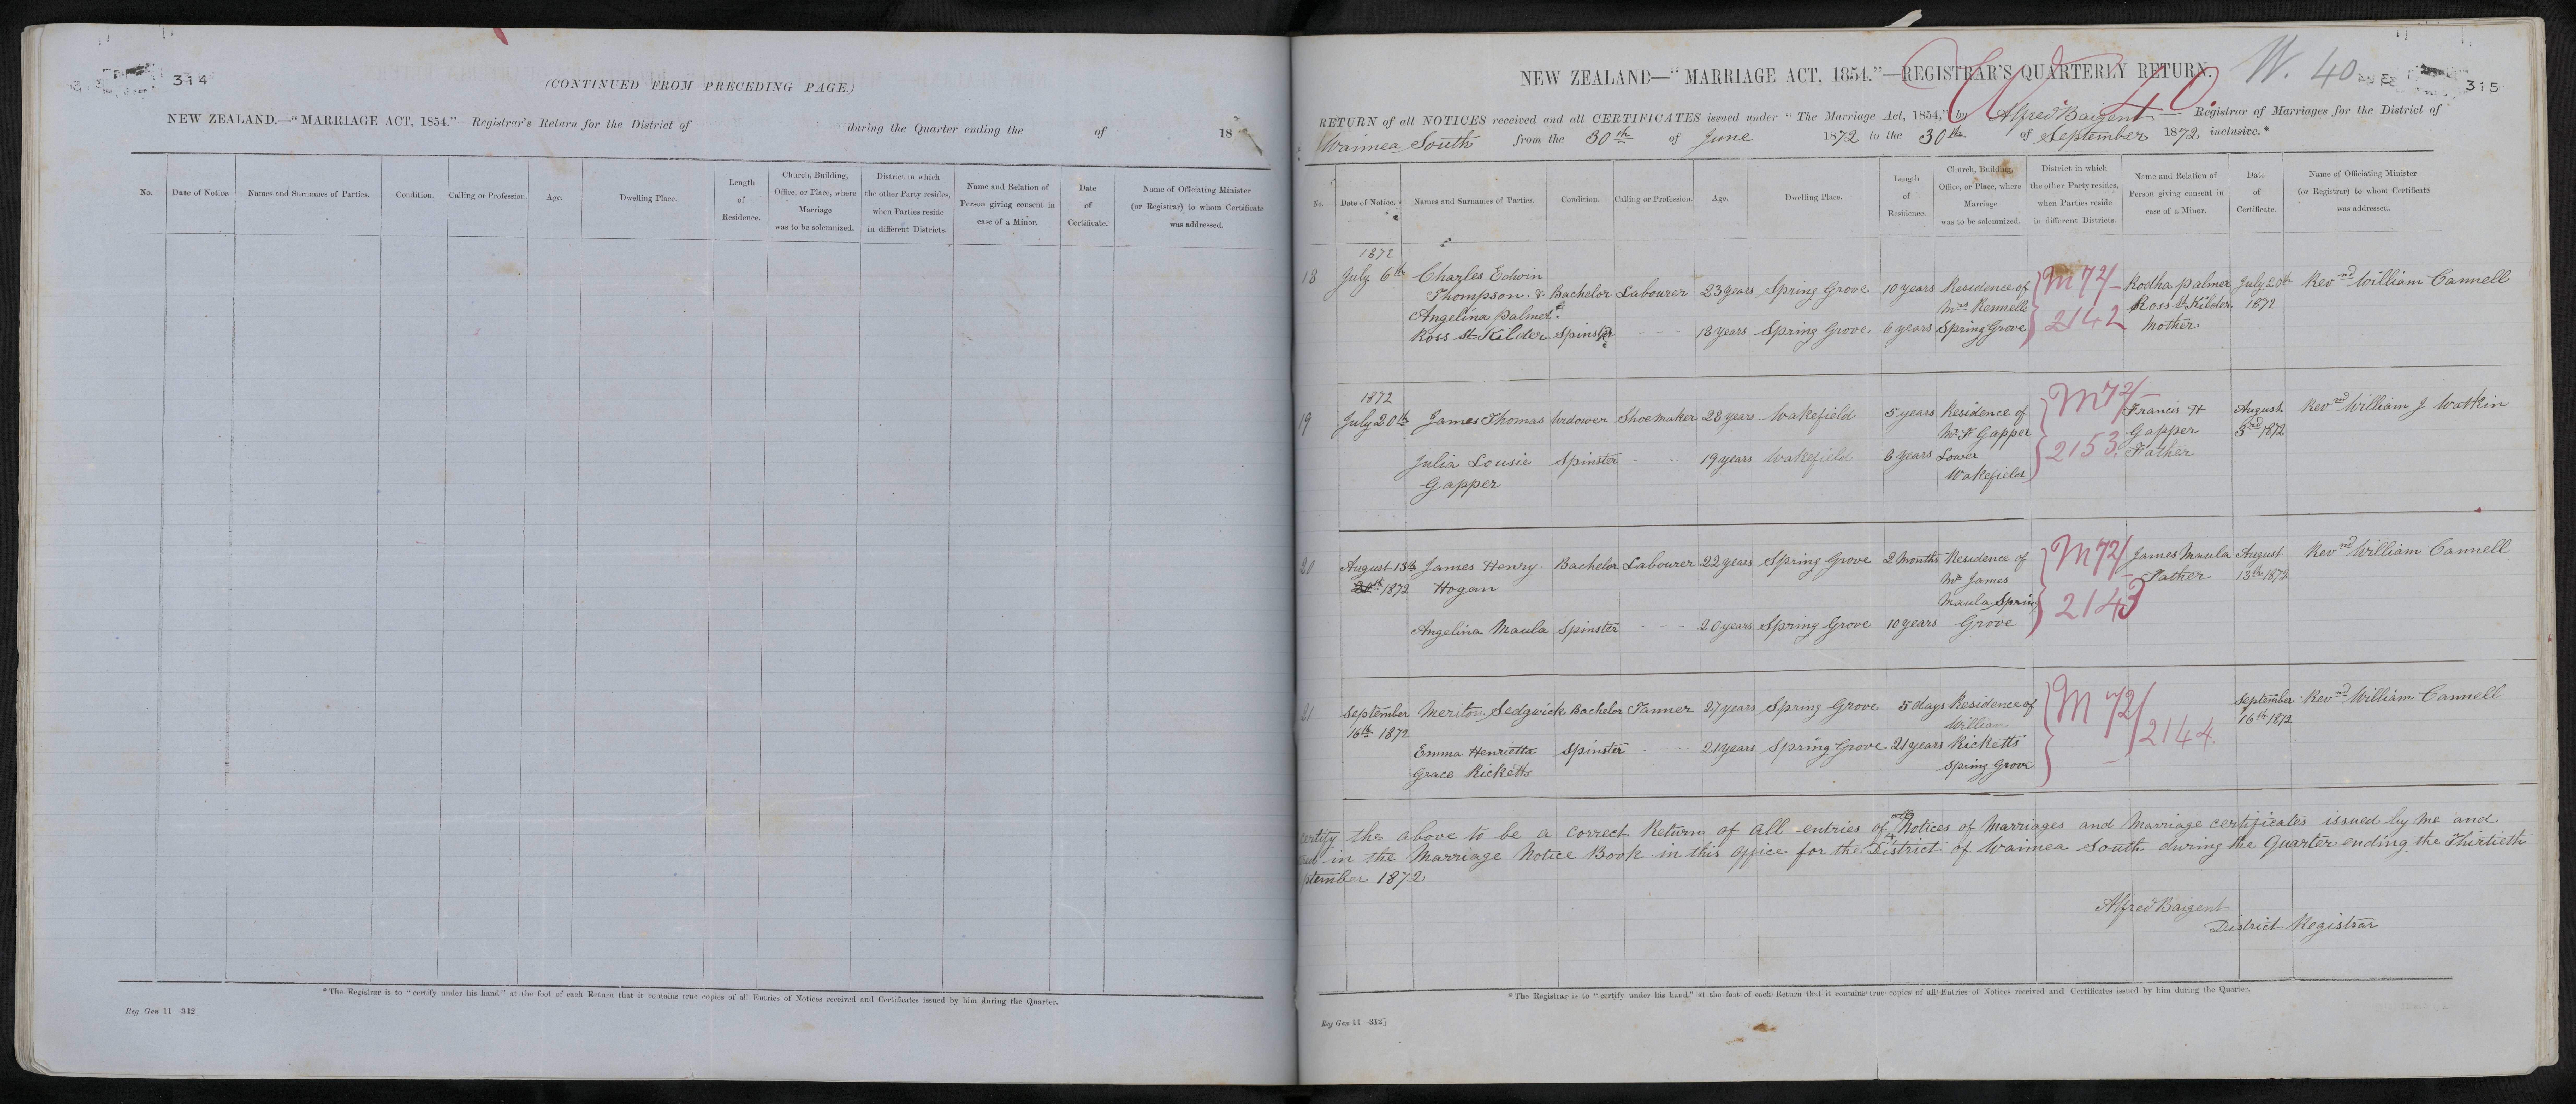 314
(CONTINUED FROM PRECEDING PAGE.)
NEW ZEALAND.—"MARRIAGE ACT, 1854."—Registrar's Return for the District of during the Quarter ending the of 18
No. Date of Notice. Names and Surnames of Parties. Condition. Calling or Profession. Age. Dwelling Place. Length of Residence. Church, Building, Office, or Place, where Marriage was to be solemnized. District in which the other Party resides, when Parties reside in different Districts. Name and Relation of Person giving consent in case of a Minor. Date of Certificate. Name of Officiating Minister (or Registrar) to whom Certificate was addressed.
*The Registrar is to "certify under his hand" at the foot of each Return that it contains true copies of all Entries of Notices received and Certificates issued by him during the Quarter.
Reg Gen 11—342]
NEW ZEALAND—"MARRIAGE ACT, 1854."—REGISTRAR'S QUARTERLY RETURN. W. 40
315
RETURN of all NOTICES received and all CERTIFICATES issued under "The Marriage Act, 1854," by Alfred Baigent Registrar of Marriages for the District of
Waimea South from the 30th of June 1872 to the 30th of September 1872 inclusive.*
No. Date of Notice. Names and Surnames of Parties. Condition. Calling or Profession. Age. Dwelling Place. Length of Residence. Church, Building, Office, or Place, where Marriage was to be solemnized. District in which the other Party resides, when Parties reside in different Districts. Name and Relation of Person giving consent in case of a Minor. Date of Certificate. Name of Officiating Minister (or Registrar) to whom Certificate was addressed.
1872
18 July 6th Charles Edwin
Thompson & Bachelor Labourer 23 years Spring Grove 10 years Residence of M72/ Rodha Palmer July 20th Revnd William Cannell
Angelina Palmer Mrs Kennells 2142 Ross St Kilder 1872
Ross St Kilder Spinster - - - 18 years Spring Grove 6 years Spring Grove Mother
1872
19 July 20th James Thomas Widower Shoemaker 28 years Wakefield 5 years Residence of M72/ Francis H August Revnd William J Watkin
Mr F Gapper 2153 Gapper 3rd 1872
Julia Lousie Spinster - - - 19 years Wakefield 8 years Lower Father
Gapper Wakefield
20 August 13th James Henry Bachelor Labourer 22 years Spring Grove 2 Months Residence of M72/ James Maula August Revnd William Cannell
1872 Hogan Mr James 2143 Father 13th 1872
Maula Spring
Angelina Maula Spinster - - - 20 years Spring Grove 10 years Grove
21 September Meriton Sedgwick Bachelor Tanner 27 years Spring Grove 5 days Residence of M72/2144. September Revnd William Cannell
16th 1872 William 16th 1872
Emma Henrietta Spinster - - - 21 years Spring Grove 21 years Ricketts
Grace Ricketts Spring Grove
certify the above to be a correct Return of all entries of all Notices of Marriages and Marriage certificates issued by me and
in the Marriage Notice Book in this office for the District of Waimea South during the Quarter ending the Thirtieth
ptember 1872
Alfred Baigent
District Registrar
*The Registrar is to "certify under his hand" at the foot of each Return that it contains true copies of all Entries of Notices received and Certificates issued by him during the Quarter.
Reg Gen 11—342]